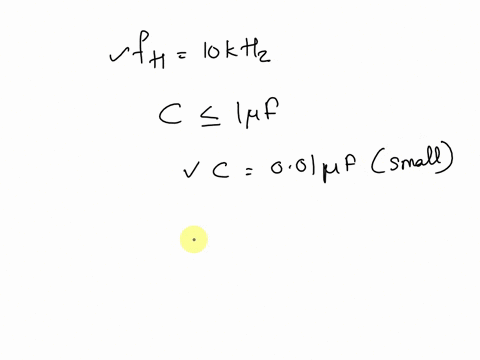 ✓ fH = 10kHz
C ≤ 1μF
✓ C = 0.01μF (small)